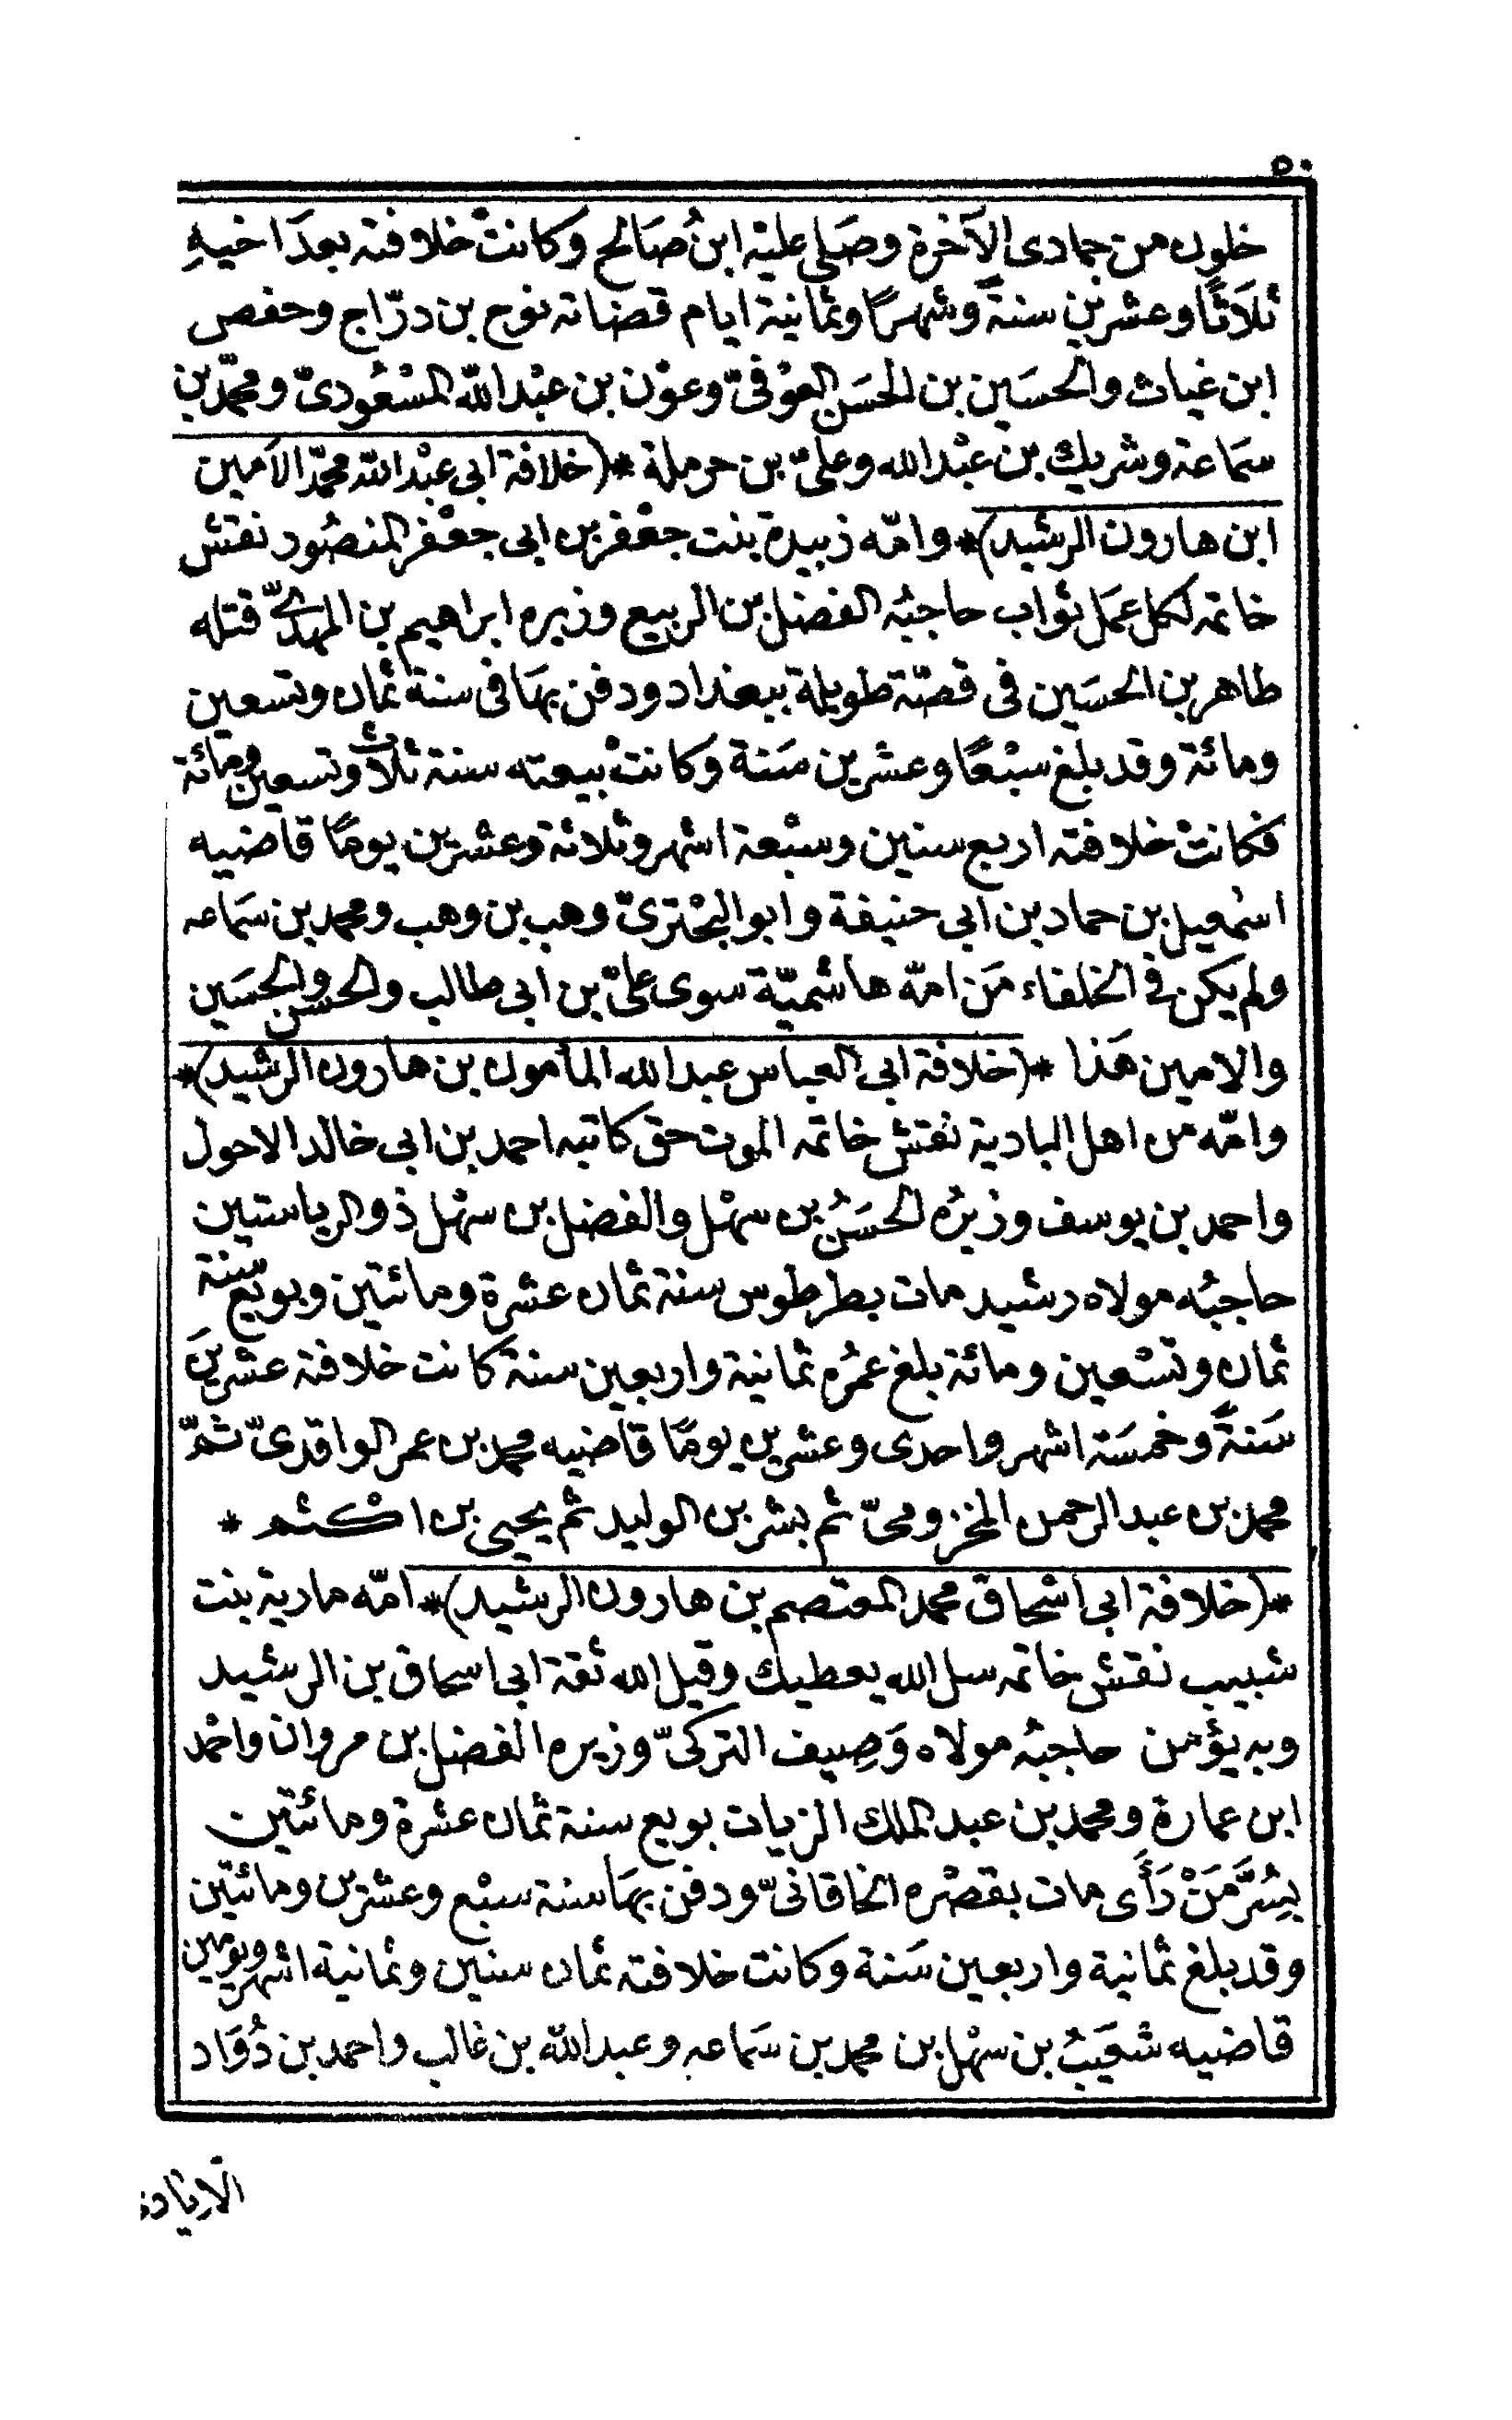 ٥٠
خلون من جمادى الآخرة وصَلى عليْه ابنُ صَالح وكانتْ خلافته بعدَ اخيهِ
ثلاَثًا وعشرين سنةً وشهرًا وثمانية ايام قضاته نوح بن درّاج وحفص
ابن غياث والحسَين بن الحسَن العوْفىّ وعوْن بن عبْد اللّه المسْعُودىّ ومحمّد بن
سَماعة وشريك بن عبْد الله وعلىّ بن حرملة *(خلافة ابى عبْد اللّه محمّد الاَمين
ابن هارون الرشيد)* وامّه زبيدة بنت جعْفر بن ابى جعْفر المنصُور نقش
خاتمه لكل عمَل ثواب حاجبُه الفضل بن الربيع وزيره ابراهيم بن المهدىّ قتله
طاهر بن الحسَين فى قصّة طويلة ببغداد ودفن بهَا فى سنة ثمان وتسعين
ومائة وقد بلغ سبْعًا وعشرين سَنة وكانتْ بيعته سنة ثلاث وتسعين ومائة
فكانتْ خلافته اربع سنين وسبْعة اشهر وثلاثة وعشرين يومًا قاضيه
اسْمعيل بن حماد بن ابى حنيفة وابو البخْترىّ وهب بن وهب ومحمد بن سَماعه
ولم يكن فى الخلفاء مَن امّه هاشميّة سوى علىّ بن ابى طالب والحسن والحسَين
والامين هَذا *(خلافة ابى العباس عبد الله المأمون بن هارون الرشيد)*
وامّه من اهل البادية نقش خاتمه الموت حق كاتبه احمد بن ابى خالد الاحول
واحمد بن يوسف وزيرُه الحسَنُ بن سهْل والفضل بن سهْل ذو الرياستين
حاجبُه مولاه رشيد مات بطرطوس سنة ثمان عشرة ومائتين وبويع سنة
ثمان وتسْعين ومائة بلغ عمُره ثمانية واربعين سنة كانت خلافته عشرينَ
سَنةً وخمسَة اشهر واحدى وعشرين يومًا قاضيه محمد بن عمر الواقدىّ ثمّ
محمد بن عبد الرحمن المخزومىّ ثم بشر بن الوليد ثم يحيى بن اكْثم *
*(خلافة ابى اسْحاق محمد المعتصم بن هارون الرشيد)* امّه مارية بنت
شبيب نقش خاتمه سل الله يعطيك وقيل الله ثقة ابى اسحاق بن الرشيد
وبه يؤمن حاجبُه مولاه وَصِيف التركىّ وزيره الفضل بن مروان واحْمد
ابن عمارة ومحمد بن عبد الملك الزيات بويع سنة ثمان عشرة ومائتين
بِسُرَّ مَنْ رَأَى مات بقصْره الخاقانىّ ودفن بهَا سنة سبْع وعشرين ومائتين
وقد بلغ ثمانية واربعين سَنة وكانت خلافته ثمان سنين وثمانية اشهر ويومين
قاضيه شعَيبُ بن سهْل بن محمد بن سَماعه وعبد اللّه بن غالب واحمد بن دُوَاد
الايادى